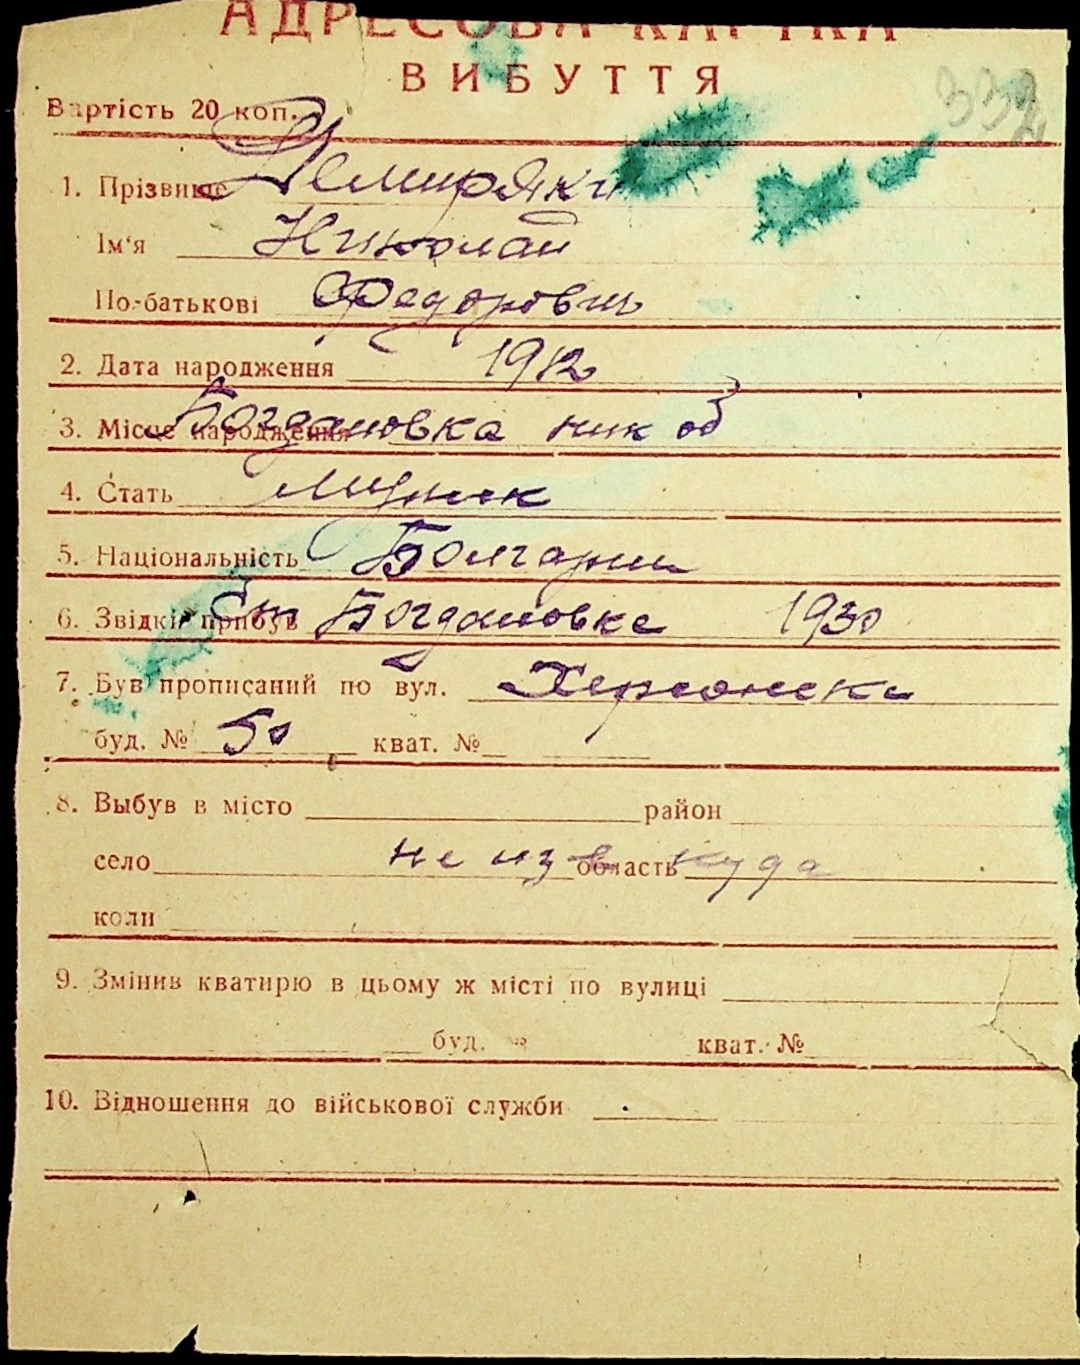 АДРЕСОВА КАРТКА
ВИБУТТЯ
332
Вартість 20 коп.
1. Прізвище
Ім'я Николай
По-батькові Федорович
2. Дата народження 1912
3. Місце народження Богдановка ник об
4. Стать мужск
5. Національність Болгарин
6. Звідки прибув Богдановка 1930
7. Був прописаний по вул. Херсонска
буд. № 50 кват. №
8. Выбув в місто район
село не изв область куда
коли
9. Змінив кватирю в цьому ж місті по вулиці
буд. № кват. №
10. Відношення до військової служби